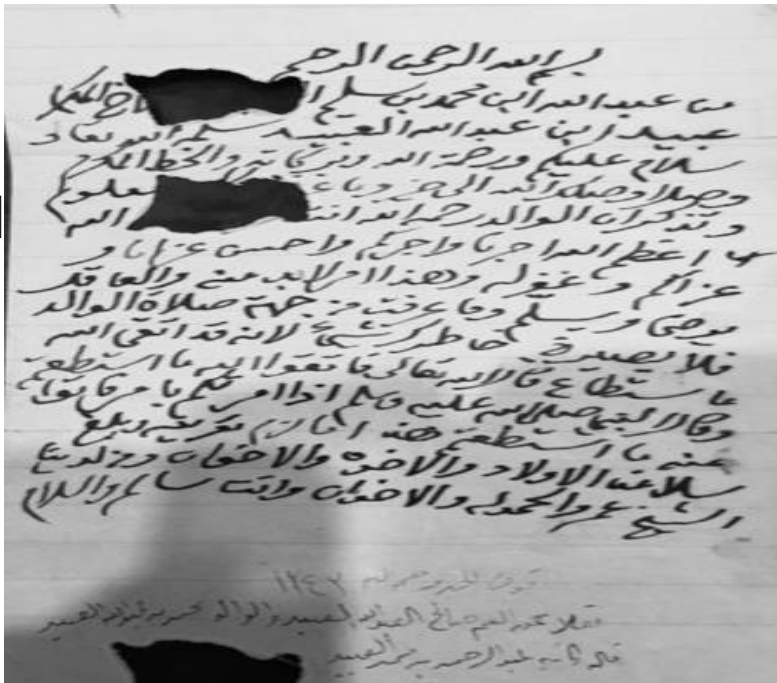 بسم الله الرحمن الرحيم
من عبدالله ابن محمد بن سليم ا الاخ المكرم
عبيد ابن عبدالله العبيد سلمه الله تعالى
سلام عليكم ورحمة الله وبركاته والخط المكرم
وصلك وصلك الله الى خير وما معلوم
وتذكر ان الوالد رحمه الله الله
اعظم الله اجرنا واجركم واحسن عزانا و
عزاكم وغفر له وهذا امر لابد منه والعاقل
يرضى ويسلم وما عرفت من جهة صلاة الوالد
فلا يصير في خاطرك شيء لانه قد اتقى الله
ما استطاع قال الله تعالى فاتقوا الله ما استطعتم
وقال النبي صلى الله عليه وسلم اذا امرتكم بامر فاتوا
منه ما استطعتم هذا ما لزم تعريفه وبلغ
سلامنا الاولاد والاخوة والاخوان ومن لدينا
الشيخ عمر والحموله والاخوان وانت سالم والسلام
١٣٤٢
صالح العبدالله العبيد والوالد العبيد
قاله كاتبه عبدالرحمن بن محمد العبيد